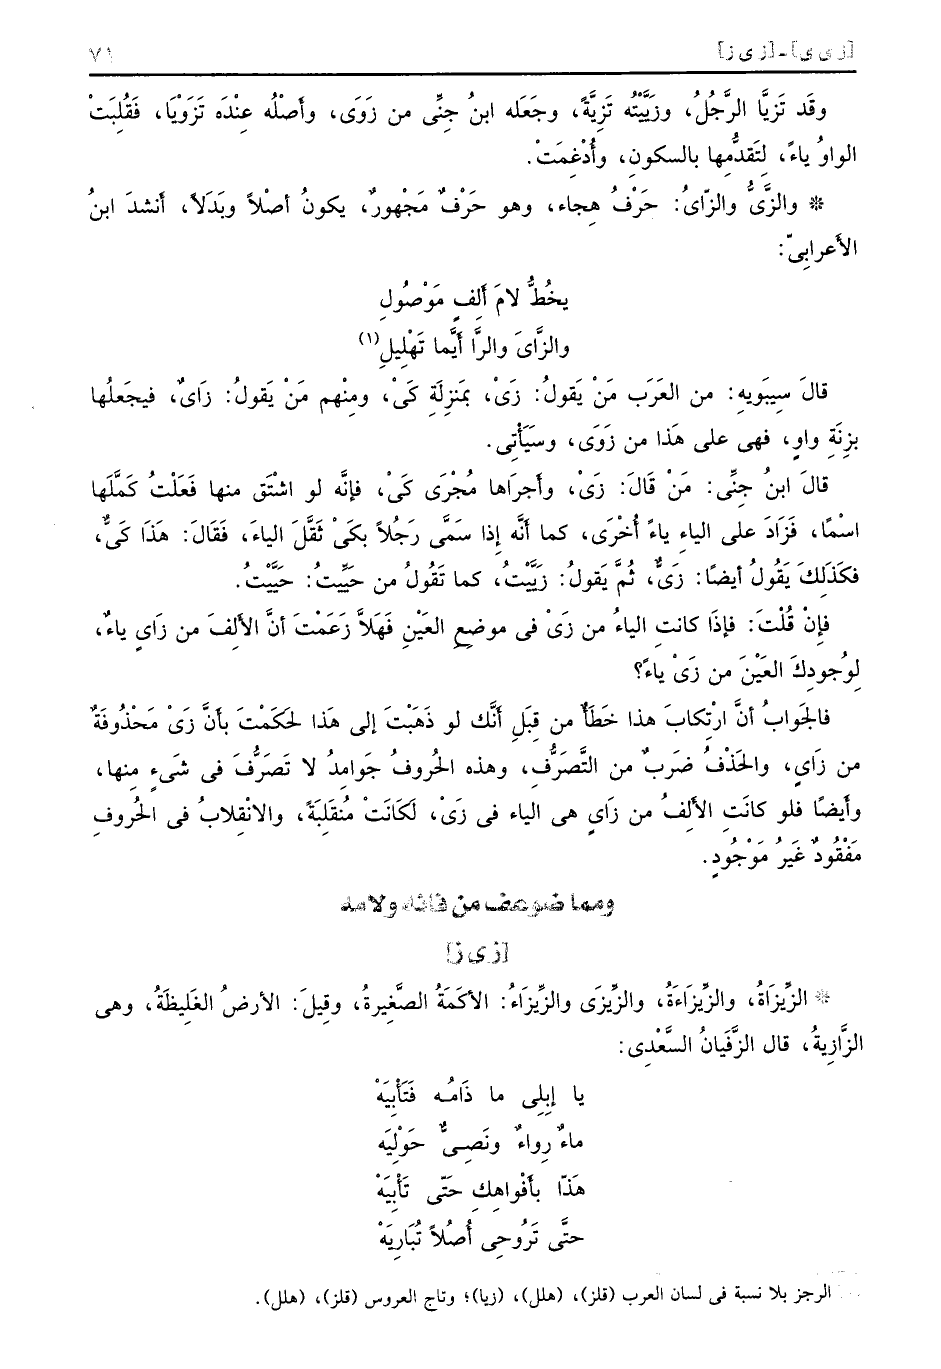 [ز ى ى] - [ز ى ز]
٧١
وقَد تَزيَّا الرَّجُلُ، وزَيَّيْتُه تزيَّةً، وجَعَله ابنُ جنِّى من زَوَى، وأَصْلُه عِنْدَه تَزَوْيَا، فَقُلِبَتْ
الواوُ ياءً، لتَقدُّمِها بالسكونِ، وأُدْغِمَتْ.
* والزَّىُّ والزّاىُ: حَرْفُ هِجاء، وهو حَرْفٌ مَجْهورٌ، يكونُ أصلاً وبَدَلاً، أنشدَ ابنُ
الأَعرابىّ:
يخُطُّ لامَ أَلِفٍ مَوْصُولِ
والزَّاىَ والرَّا أيَّما تَهْلِيلِ(١)
قالَ سيبَويهِ: من العَرَبِ مَنْ يَقولُ: زَىْ، بمَنزِلَةِ كَىْ، ومنْهم مَنْ يَقولُ: زَاىٌ، فيجَعلُها
بزِنَةِ واوٍ، فهى على هَذا من زَوَى، وسيَأْتِى.
قالَ ابنُ جنِّى: مَنْ قَالَ: زَىْ، وأجراَها مُجْرَى كَىْ، فإنَّه لو اشتَق منها فَعَلْتُ كَمَّلَها
اسْمًا، فَزَادَ على الياءِ ياءً أُخْرَى، كما أنَّه إذا سَمَّى رَجُلاً بكَىْ ثَقَّلَ الياءَ، فَقَالَ: هَذَا كَىٌّ،
فكذَلِكَ يَقُولُ أيضًا: زَىٌّ، ثُمَّ يَقولُ: زَيَّيْتُ، كما تَقُولُ من حَيِيتُ: حَيَّيْتُ.
فإنْ قُلْتَ: فإذَا كانتِ الياءُ من زَىْ فى موضعِ العَيْنِ فَهَلاَّ زَعَمْتَ أنَّ الألفَ من زَاىٍ ياءٌ،
لِوُجودِكَ العَيْنَ من زَىْ ياءً؟
فالجَوابُ أنَّ ارْتِكابَ هذا خَطَأٌ من قِبَلِ أنَّك لو ذَهَبْتَ إلى هَذا لحَكَمْتَ بأنَّ زَىْ مَحْذُوفَةٌ
من زَاىٍ، والحَذْفُ ضَربٌ من التَّصرُّفِ، وهذه الحُروفُ جَوامِدُ لا تَصرُّفَ فى شَىءٍ منها،
وأيضًا فلو كانَتِ الألفُ من زَاىٍ هى الياء فى زَىْ، لَكَانَتْ مُنقَلِبَةً، والانْقلابُ فى الحُروفِ
مَفْقُودٌ غَيرُ مَوْجُودٍ.
ومما ضوعف من فائه ولامه
[ز ى ز]
* الزِّيزَاةُ، والزِّيزَاءَةُ، والزِّيزَى والزِّيزَاءُ: الأكَمَةُ الصَّغِيرةُ، وقيِلَ: الأرضُ الغَلِيظَةُ، وهى
الزَّازِيةُ، قال الزَّفَيانُ السَّعْدِى:
يا إبِلِى ما ذَامُه فَتَأْبِيَهْ
ماءٌ رِواءٌ ونَصِىٌّ حَوْلِيَه
هَذَا بأَفْواهِكِ حَتّى تَأْبِيَهْ
حتَّى تَرُوحِى أُصُلاً تُبَارِيَهْ
الرجز بلا نسبة فى لسان العرب (قلز)، (هلل)، (زيا)؛ وتاج العروس (قلز)، (هلل).